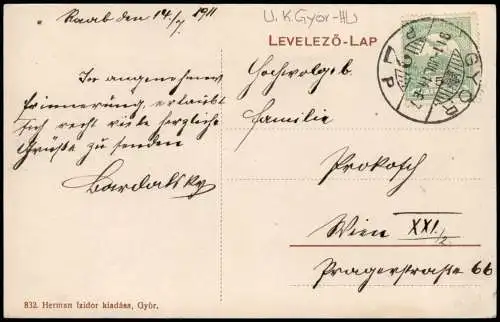 Raab den 14/7 1911
U.K. Gyor-HU
LEVELEZŐ-LAP
GYŐR
In angenehmer
Erinnerung, erlaubt
sich recht viele herzliche
Grüße zu senden
Bardatsky
Hochwolgeb.
Familie
Prokosch
Wien XXI./2
Pragerstraße 66
832. Herman Izidor kiadása, Győr.